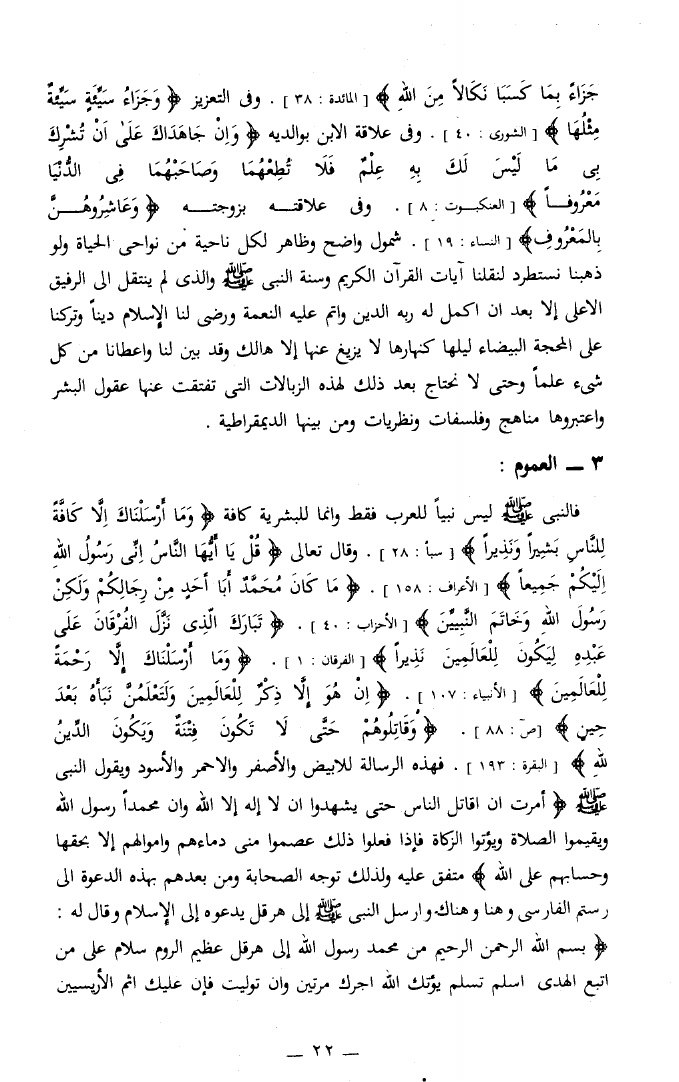 جَزَاءً بِمَا كَسَبَا نَكَالاً مِنَ اللهِ ﴾ [ المائدة : ٣٨ ] . وفى التعزيز ﴿ وَجَزَاءُ سَيِّئَةٍ سَيِّئَةٌ
مِثْلُهَا ﴾ [ الشورى : ٤٠ ] . وفى علاقة الابن بوالديه ﴿ وَاِنْ جَاهَدَاكَ عَلَىٰ اَنْ تُشْرِكَ
بِى مَا لَيْسَ لَكَ بِهِ عِلْمٌ فَلَا تُطِعْهُمَا وَصَاحَبْهُمَا فِى الدُّنْيَا
مَعْرُوفـــاً ﴾ [ العنكبـوت : ٨ ] . وفى علاقتـــه بزوجتـــه ﴿ وَعَاشِرُوهُـــنَّ
بِالمَعْرُوفِ﴾ [ النساء : ١٩ ] . شمول واضح وظاهر لكل ناحية من نواحى الحياة ولو
ذهبنا نستطرد لنقلنا آيات القرآن الكريم وسنة النبى ﷺ والذى لم ينتقل الى الرفيق
الاعلى إلا بعد ان اكمل له ربه الدين واتم عليه النعمة ورضى لنا الإسلام ديناً وتركنا
على المحجة البيضاء ليلها كنهارها لا يزيغ عنها إلا هالك وقد بين لنا واعطانا من كل
شىء علماً وحتى لا نحتاج بعد ذلك لهذه الزبالات التى تفتقت عنها عقول البشر
واعتبروها مناهج وفلسفات ونظريات ومن بينها الديمقراطية .
٣ ــ العموم :
فالنبى ﷺ ليس نبياً للعرب فقط وانما للبشرية كافة ﴿ وَمَا أَرْسَلْنَاكَ اِلَّا كَافَّةً
لِلنَّاسِ بَشِيراً وَنَذِيراً ﴾ [ سبأ : ٢٨ ] . وقال تعالى ﴿ قُلْ يَا أَيُّهَا النَّاسُ اِنِّى رَسُولُ اللهِ
اِلَيْكُمْ جَمِيعاً ﴾ [ الأعراف : ١٥٨ ] . ﴿ مَا كَانَ مُحَمَّدٌ أَبَا أَحَدٍ مِنْ رِجَالِكُمْ وَلَكِنْ
رَسُولَ اللهِ وَخَاتَمَ النَّبِيِّينَ ﴾ [ الأحزاب : ٤٠ ] . ﴿ تَبَارَكَ الَّذِى نَزَّلَ الفُرْقَانَ عَلَى
عَبْدِهِ لِيَكُونَ لِلْعَالَمِينَ نَذِيراً ﴾ [ الفرقان : ١ ] . ﴿ وَمَا أَرْسَلْنَاكَ إِلَّا رَحْمَةً
لِلْعَالَمِينَ ﴾ [ الأنبياء : ١٠٧ ] . ﴿ اِنْ هُوَ اِلَّا ذِكْرٌ لِلْعَالَمِينَ وَلَتَعْلَمُنَّ نَبَأَهُ بَعْدَ
حِينٍ ﴾ [صۤ : ٨٨ ] . ﴿ وَقَاتِلُوهُمْ حَتَّى لَا تَكُونَ فِتْنَةٌ وَيَكُونَ الدِّينُ
للهِ ﴾ [ البقرة : ١٩٣ ] . فهذه الرسالة للابيض والأصفر والاحمر والأسود ويقول النبى
ﷺ ﴿ أمرت ان اقاتل الناس حتى يشهدوا ان لا إله إلا الله وان محمداً رسول الله
ويقيموا الصلاة ويؤتوا الزكاة فإذا فعلوا ذلك عصموا منى دماءهم واموالهم إلا بحقها
وحسابهم على الله ﴾ متفق عليه ولذلك توجه الصحابة ومن بعدهم بهذه الدعوة الى
رستم الفارسى وهنا وهناك وارسل النبى ﷺ إلى هرقل يدعوه إلى الإسلام وقال له :
﴿ بسم الله الرحمن الرحيم من محمد رسول الله إلى هرقل عظيم الروم سلام على من
اتبع الهدى اسلم تسلم يؤتك الله اجرك مرتين وان توليت فإن عليك اثم الأريسيين
ــ ٢٢ ــ